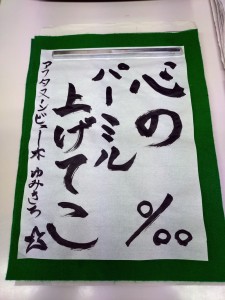 心の‰
パーミル
上げてこ
アフタヌーンビュー水 ゆみきち